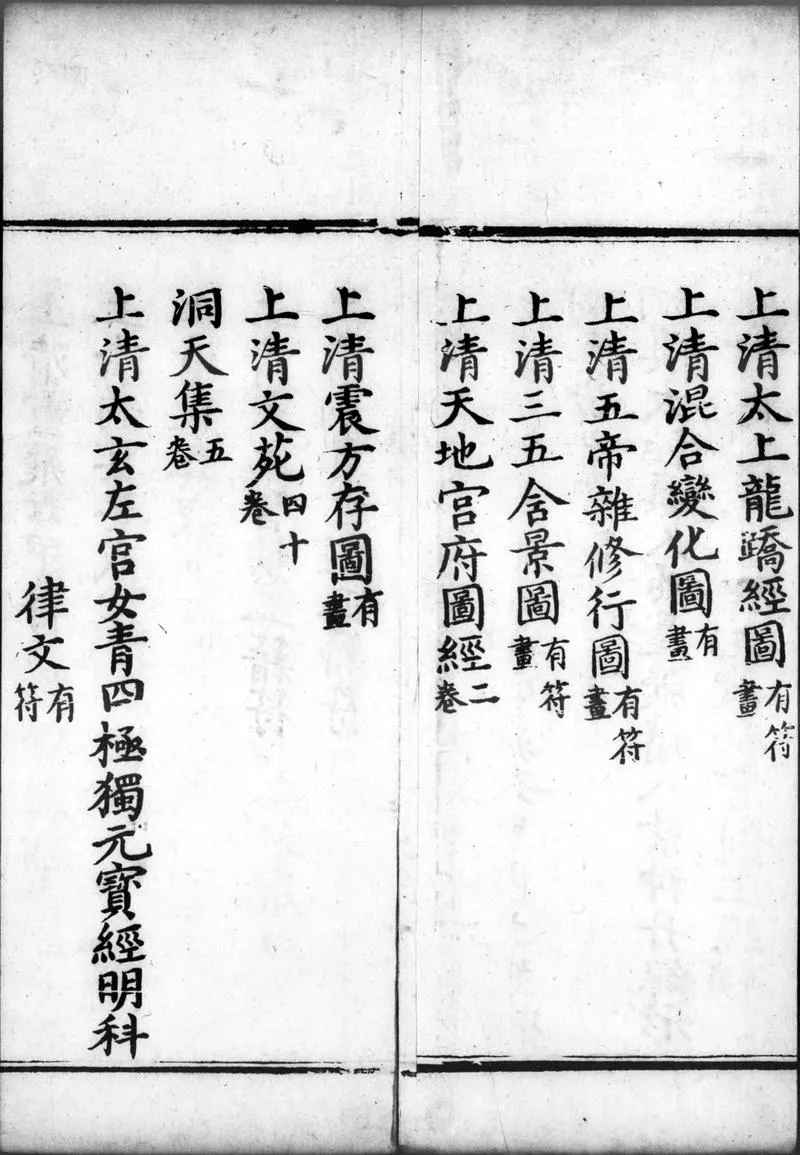 上清太上龍蹻經圖有符畫
上清混合變化圖有畫
上清五帝雜修行圖有符畫
上清三五舍景圖有符畫
上清天地宮府圖經二卷
上清震方存圖有畫
上清文苑四十卷
洞天集五卷
上清太玄左官女青四極獨元寶經明科
律文有符